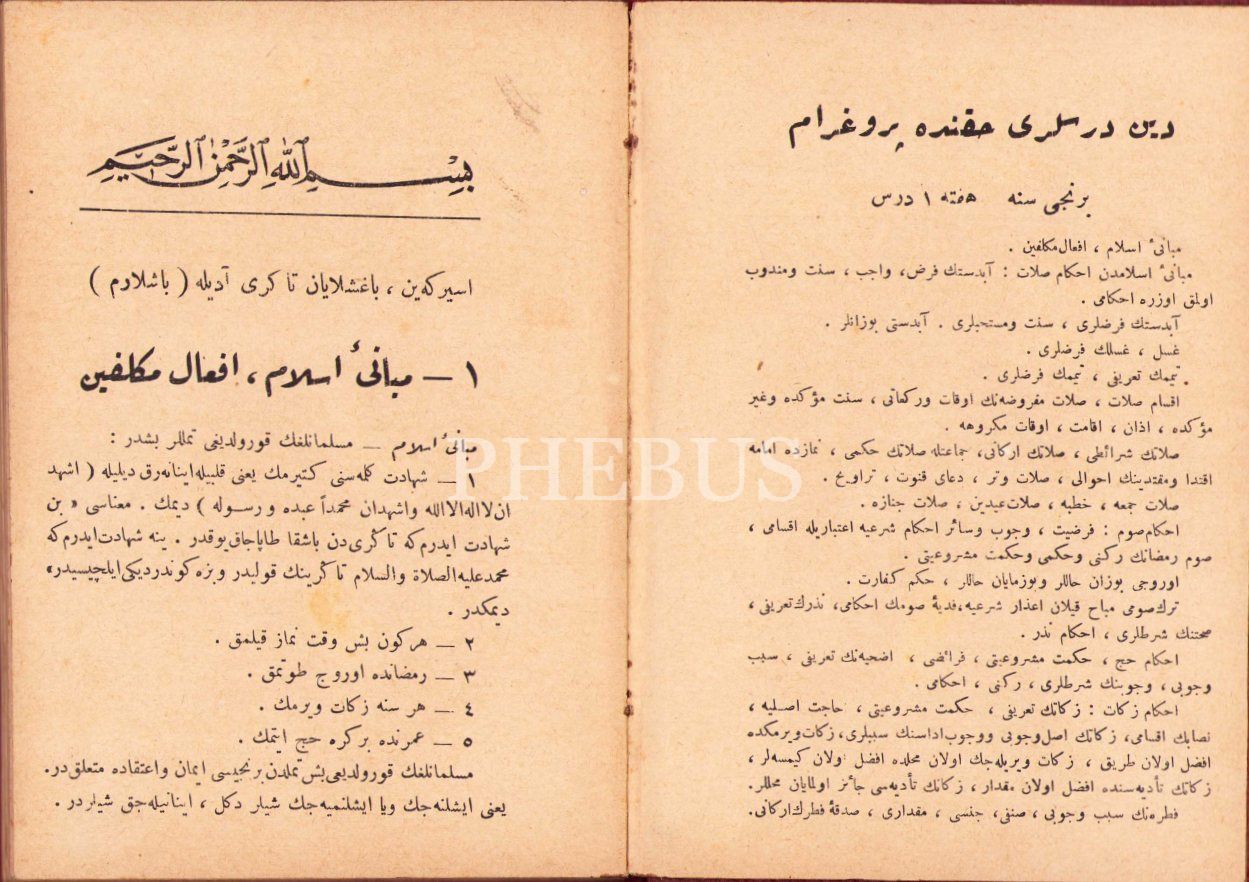 دین درسلری حقنده پروغرام
برنجی سنه هفته ١ درس
مبانئ اسلام ، افعال مكلفین .
مبانئ اسلامدن احكام صلات : آبدستك فرض، واجب ، سنت ومندوب
اولمق اوزره احكامی .
آبدستك فرضلری ، سنت ومستحبلری . آبدستی بوزانلر .
غسل ، غسلك فرضلری .
تیممك تعریفی ، تیممك فرضلری .
اقسام صلات ، صلات مفروضه‌نك اوقات وركعاتی ، سنت مؤكده وغیر
مؤكده ، اذان ، اقامت ، اوقات مكروهه .
صلاتك شرائطی ، صلاتك اركانی، جماعتله صلاتك حكمی ، نمازده امامه
اقتدا ومقتدینك احوالی ، صلات وتر ، دعای قنوت ، تراویح .
صلات جمعه ، خطبه ، صلات عیدین ، صلات جنازه .
احكام صوم : فرضیت ، وجوب وسائر احكام شرعیه اعتباریله اقسامی ،
صوم رمضانك ركنی وحكمی وحكمت مشروعیتی .
اوروجی بوزان حاللر وبوزمایان حاللر ، حكم كفارت .
ترك صومی مباح قیلان اعذار شرعیه، فدیهٔ صومك احكامی، نذرك تعریفی ،
صحتنك شرطلری ، احكام نذر .
احكام حج ، حكمت مشروعیتی ، فرائضی ، اضحیه‌نك تعریفی ، سبب
وجوبی ، وجوبنك شرطلری ، ركنی ، احكامی .
احكام زكات : زكاتك تعریفی ، حكمت مشروعیتی ، حاجت اصلیه ،
نصابك اقسامی، زكاتك اصل وجوبی ووجوب اداسنك سببلری، زكات ویرمكده
افضل اولان طریق ، زكات ویریله‌جك اولان محلده افضل اولان كیمسه‌لر ،
زكاتك تأدیه‌سنده افضل اولان مقدار ، زكاتك تأدیه‌سی جائز اولمایان محللر.
فطره‌نك سبب وجوبی ، صنفی، جنسی ، مقداری ، صدقهٔ فطرك اركانی.
بِسْمِ اللّٰهِ الرَّحْمٰنِ الرَّحٖيمِ
اسیركه‌ین ، باغشلایان تاكری آدیله ( باشلارم )
١ — مبانئ اسلام ، افعال مكلفین
مبانئ اسلام — مسلمانلغك قورولدیغی تمللر بشدر :
١ — شهادت كلمه‌سنی كتیرمك یعنی قلبیله اینانه‌رق دیلیله ( اشهد
ان لااله‌الاالله واشهدان محمداً عبده ورسوله ) دیمك . معناسی « بن
شهادت ایدرم كه تاكری‌دن باشقا طاپاجاق یوقدر . ینه شهادت ایدرم كه
محمد علیه الصلاة والسلام تاكرینك قولیدر وبزه كوندردیكی ایلچیسیدر »
دیمكدر .
٢ — هركون بش وقت نماز قیلمق .
٣ — رمضانده اوروج طوتمق .
٤ — هر سنه زكات ویرمك .
٥ — عمرنده بركره حج ایتمك .
مسلمانلغك قورولدیغی بش تملدن برنجیسی ایمان واعتقاده متعلق‌در.
یعنی ایشلنه‌جك ویا ایشلنمیه‌جك شیلر دكل ، اینانیله‌جق شیلردر .
PHEBUS